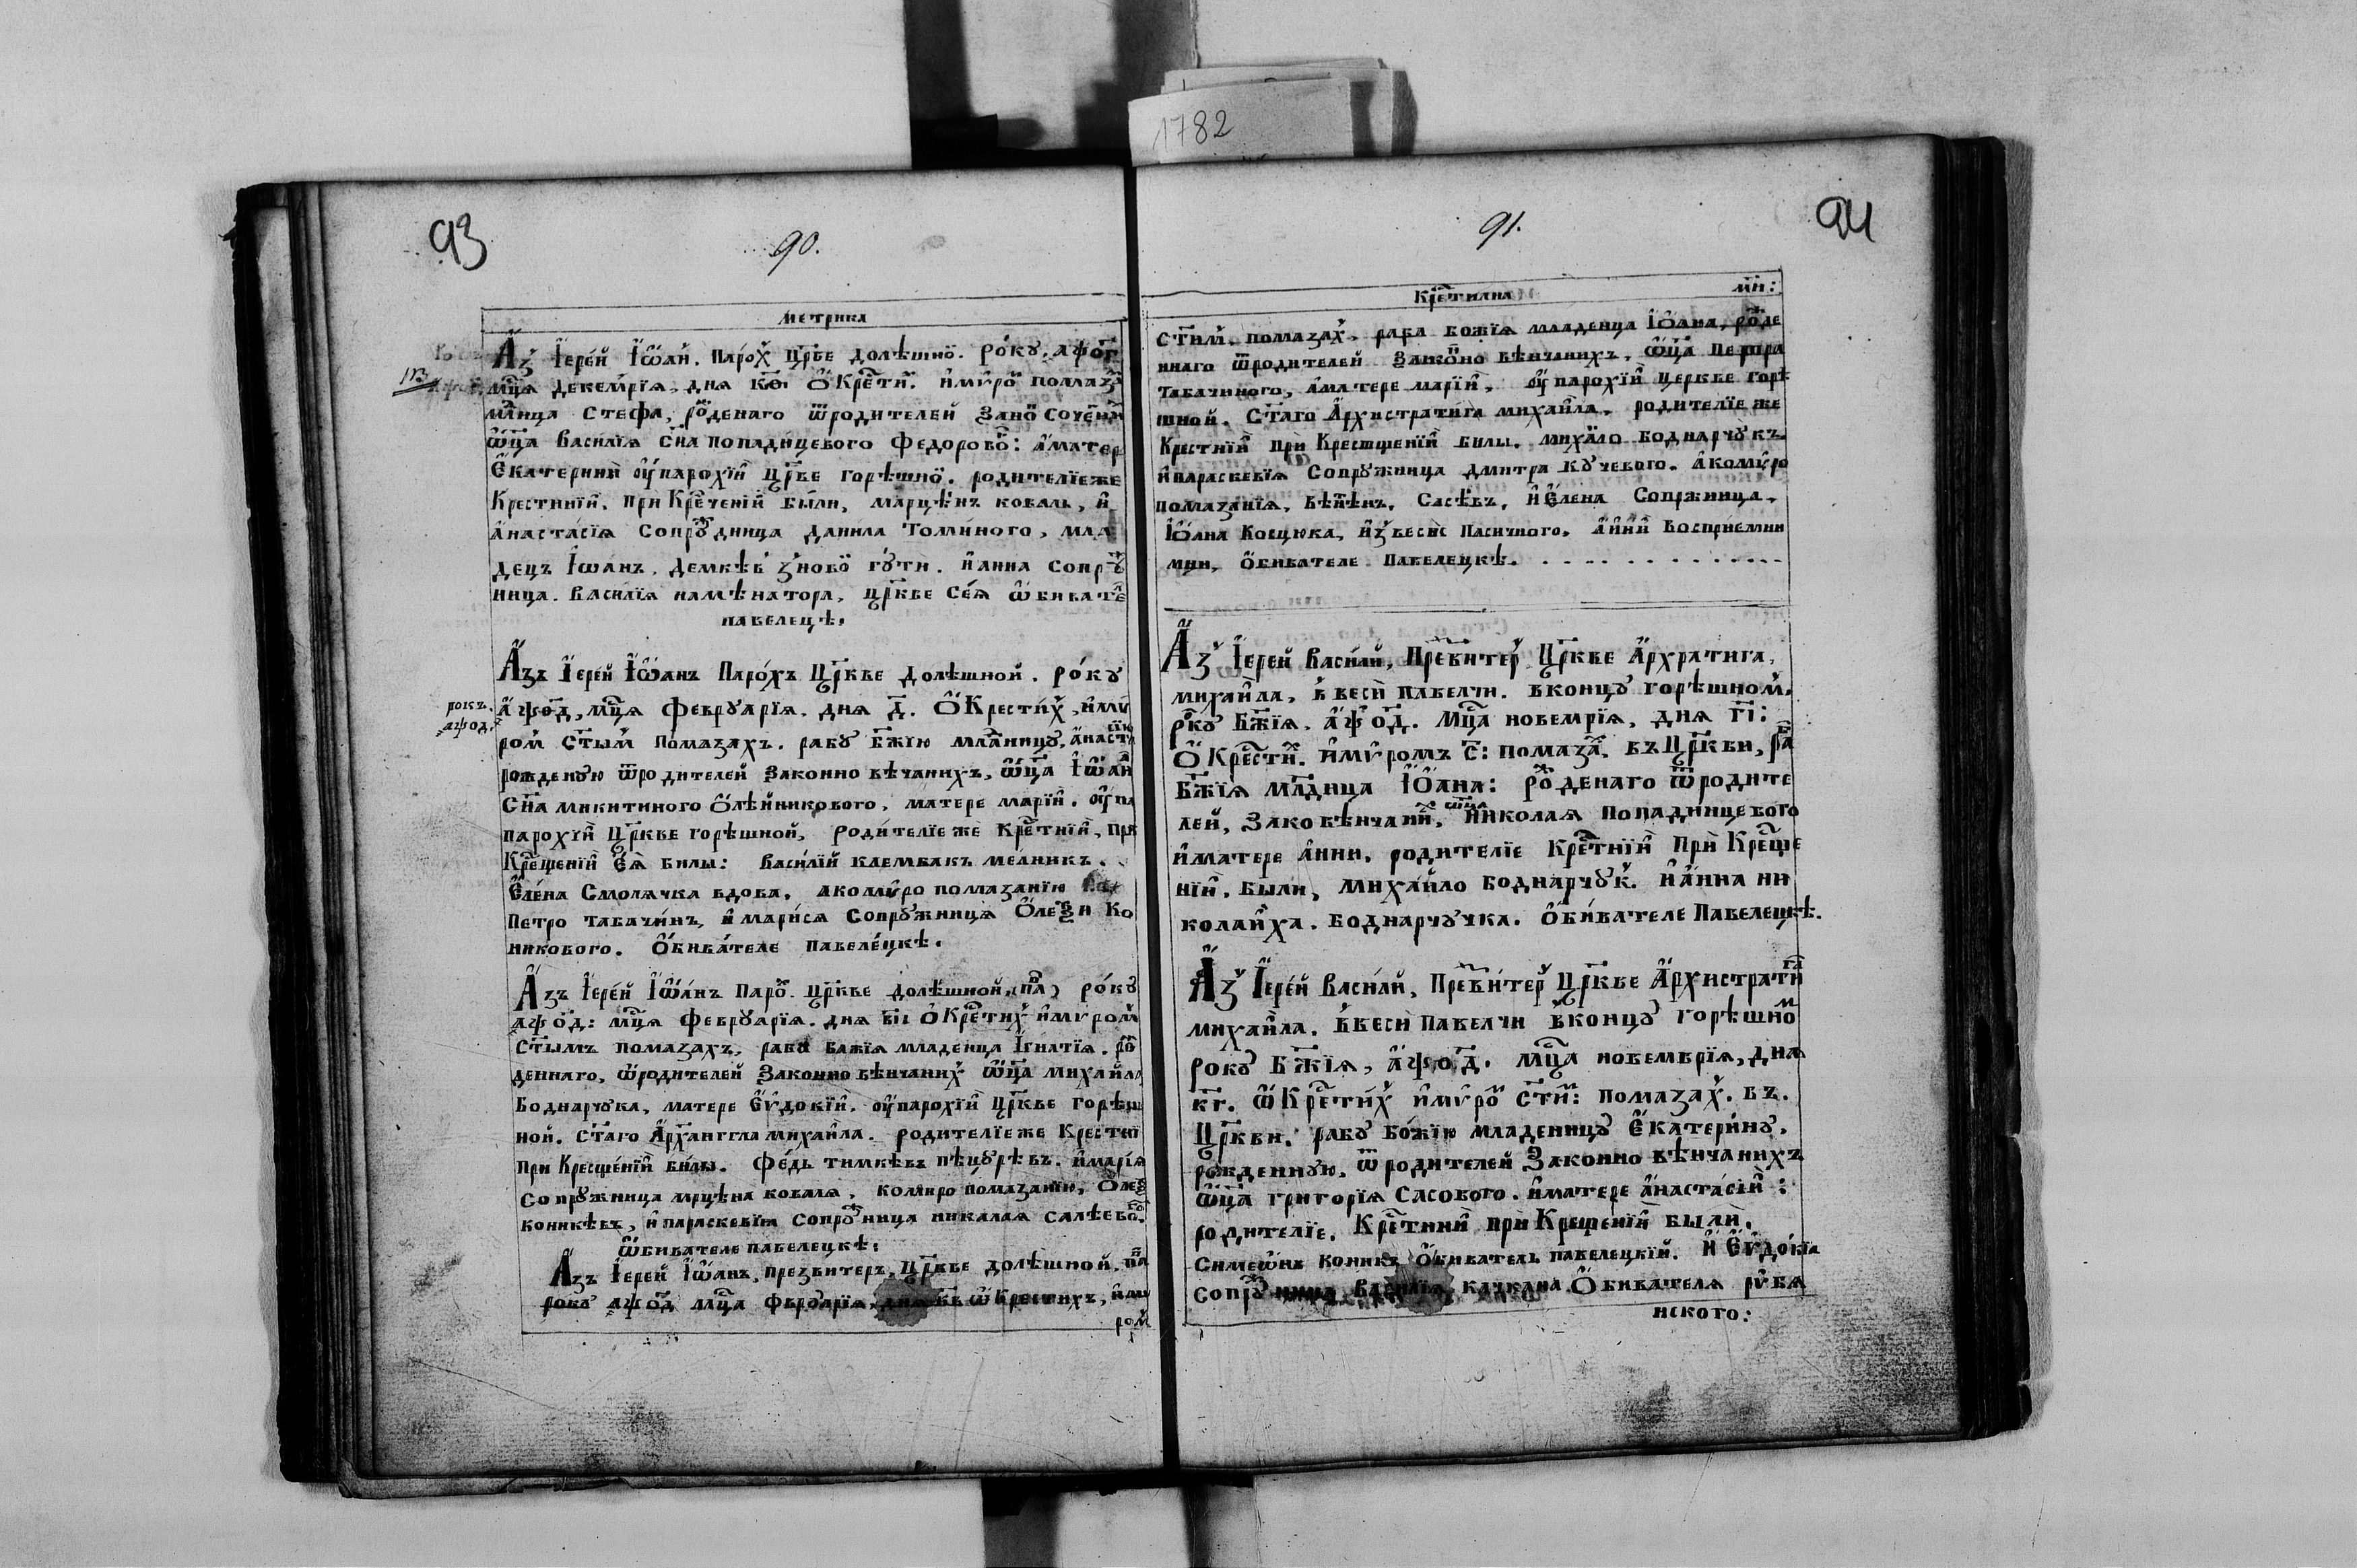 1782
93
90.
метрика
Азъ Іерей Іѡан. Парох Цр҃ве долѣшноѝ. Року, аѱо҃г
мц҃а декемріа, дня к҃ѳ Окрести. и мѵро помаза
мл҃нца Стефа, рожденаго ѿродителей Зано Сочені
ѡц҃а Василіа сн҃а попадицевого Федорово: а матер
Екатерини оу парохіи цр҃ве горѣшноѝ. родителіе же
Крестниіи. при Кр҃щеніи были, марцѣнъ коваль, и
анастасіа Сопружница данила Томиного, мла
децъ Іѡанъ. демкѣв з новоѝ гути. и анна Сопру
ница. Василіа намѣнатора, цр҃кве Сеа Ѡбивате
павелецѣ.
рокъ.
аѱод.
Азъ Іерей Іѡанъ Парохъ Цр҃кве долѣшной. року
аѱо҃д, мц҃а февруаріа. дня д҃. Окрестих, и мѵ
ром ст҃ым помазахъ. рабу бж҃ію мл҃аницу, анаст
рождению ѿродителей законно вѣчанихъ, ѡц҃а Іѡан
сн҃а микитиного Олѣйникового, матере маріи. оу па
парохіи цр҃кве горѣшной, родителіе же кр҃стниіи, при
Кр҃щеніи еа били: василій клембакъ мелникъ.
Елена Смолячка вдова, а коммѵро помазанію
Петро табачинъ, и мариса Сопружница Олекзи Ко
никового. Обивателе павелецкѣ.
Азъ Іерей Іѡанъ паро. цр҃кве долѣшной, (па) року
аѱо҃д: мц҃а февруаріа. дня в҃і Окр҃стих и мѵром
ст҃ымъ помазахъ, раба бажіа младенца Ігнатіа. ро
деннаго, ѿродителей законно вѣнчаних ѡц҃а михаила
Боднарчука, матере Еѵдокіи. оу парохіи цр҃кве горѣш
ной. ст҃аго Арханггла михаила. родителіе же Крестнії
при Крещеніи били. Федь тимкѣвъ пѣцурѣвъ. и маріа
Сопружница мрцѣна коваля, комѵро помазанію, Олекз
коникѣвъ, и параскевіа Сопружница николая Салѣево.
Ѡбивателе павелецкѣ:
Азъ Іерей Іѡанъ, презвитеръ, цр҃кве долѣшной, па
року аѱо҃д мц҃а фвруаріа, дня кв ѡкрестихъ, и мѵ
ром
94
91.
Кр҃тилна
ми:
ст҃им, помазах, раба божіа младенца Іоана, роде
ннаго ѿродителей законно вѣнчанихъ, ѡц҃а Петра
табачиного, а матере маріи, оу парохіи церкве горѣ
шной. ст҃аго Архистратига михаила, родителіе же
Крестніи при Крестщеніи били. михайло боднарчукъ
и параскевіа Сопружница дмитра кучевого. а комѵро
помазаніа, Сасѣвъ, и Елена Сопржница
Іоана Косцюка, изъ веси Пасичного. анни восприемни
мци, Обивателе Павелецкѣ. . . . . . . . . . . . . .
Аз Іерей Васілій, Превитер Цр҃кве Архратига,
михаила, в веси павелчи. в концу горѣшном.
року бж҃іа, аѱо҃д. мц҃а новемріа, дня г҃і:
Окрести. и мѵромъ с҃: помаза. въ цр҃кви, ра
бж҃іа мл҃адица Іоана: рожденаго ѿродите
лей, зако вѣнчани, ѡц҃а николая попадницевого
и матере анни, родителіе кр҃стніи при Кр҃ще
ніи, были, михайло боднарчук. и анна ни
колаиха. боднарчучка. Обивателе Павелецкѣ.
Аз Іерей Васілій, Превитер Цр҃кве Архистрати
михаила. в веси павелчи в концу горѣшно
року бж҃іа, аѱо҃д. мц҃а новемвріа, дня
к҃г. Ѡкр҃стих и мѵро ст҃и: помазах. въ.
цр҃кви. рабу божію младеницу Екатерину.
рожденную, ѿ родителей законно вѣнчанихъ
ѡц҃а григоріа Сасового. и матере анастасіи:
родителіе. Кр҃стнии при Крещеніи были.
Симеѡнъ коникъ Обиватель павелецкій. и Еѵдокіа
Сопружница Василіа качкана Обивателя риба
нского: